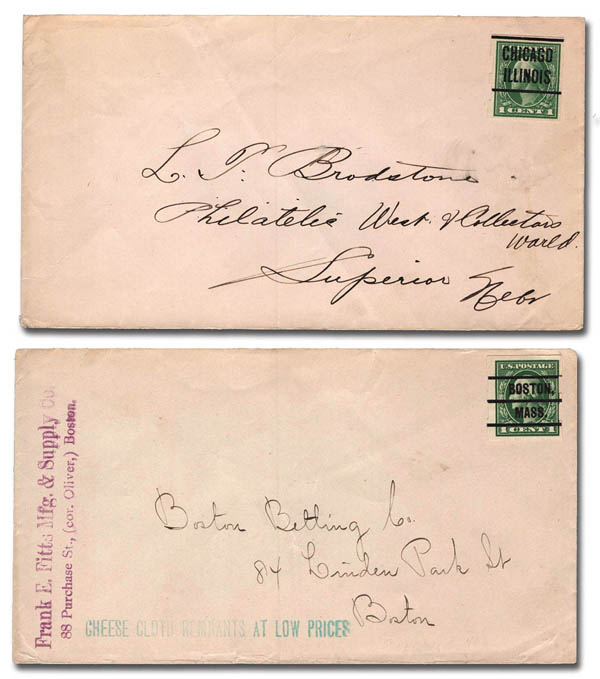 CHICAGO
ILLINOIS
1 CENT 1
L. T. Brodstone
Philatelic West. & Collectors
World.
Superior Nebr
U.S. POSTAGE
BOSTON,
MASS.
1 CENT 1
Frank E. Fitts Mfg. & Supply Co.
88 Purchase St., (cor. Oliver,) Boston.
Boston Belting Co.
84 Linden Park St
Boston
CHEESE CLOTH REMNANTS AT LOW PRICES